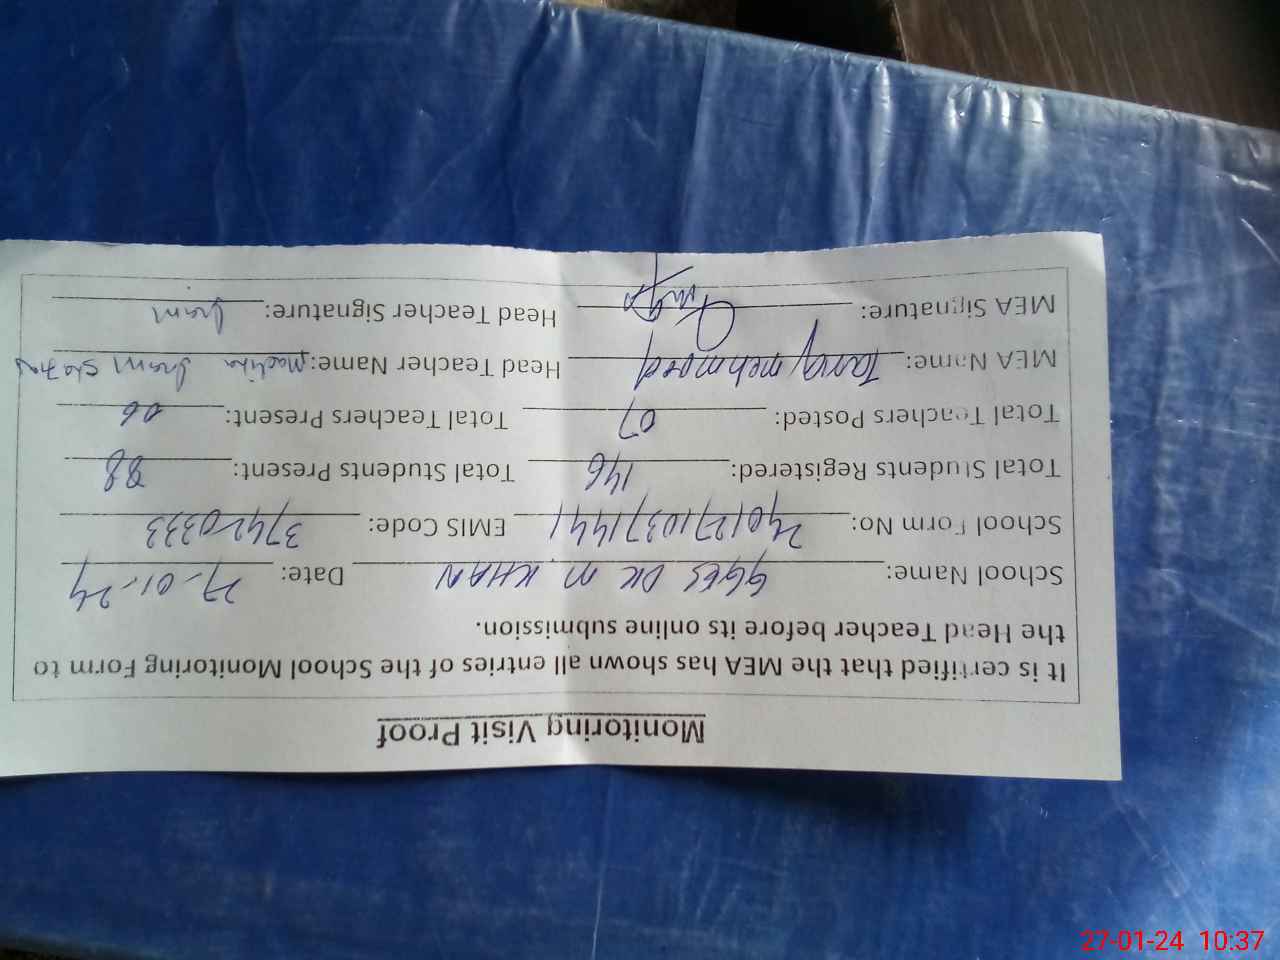 Monitoring Visit Proof
It is certified that the MEA has shown all entries of the School Monitoring Form to
the Head Teacher before its online submission.
School Name: GGES DK M KHAN Date: 27-01-24
School Form No: EMIS Code: 37420333
Total Students Registered: 146 Total Students Present: 88
Total Teachers Posted: 07 Total Teachers Present: 06
MEA Name: Tariq mehmood Head Teacher Name: Iram
MEA Signature: Head Teacher Signature: Iram
27-01-24 10:37